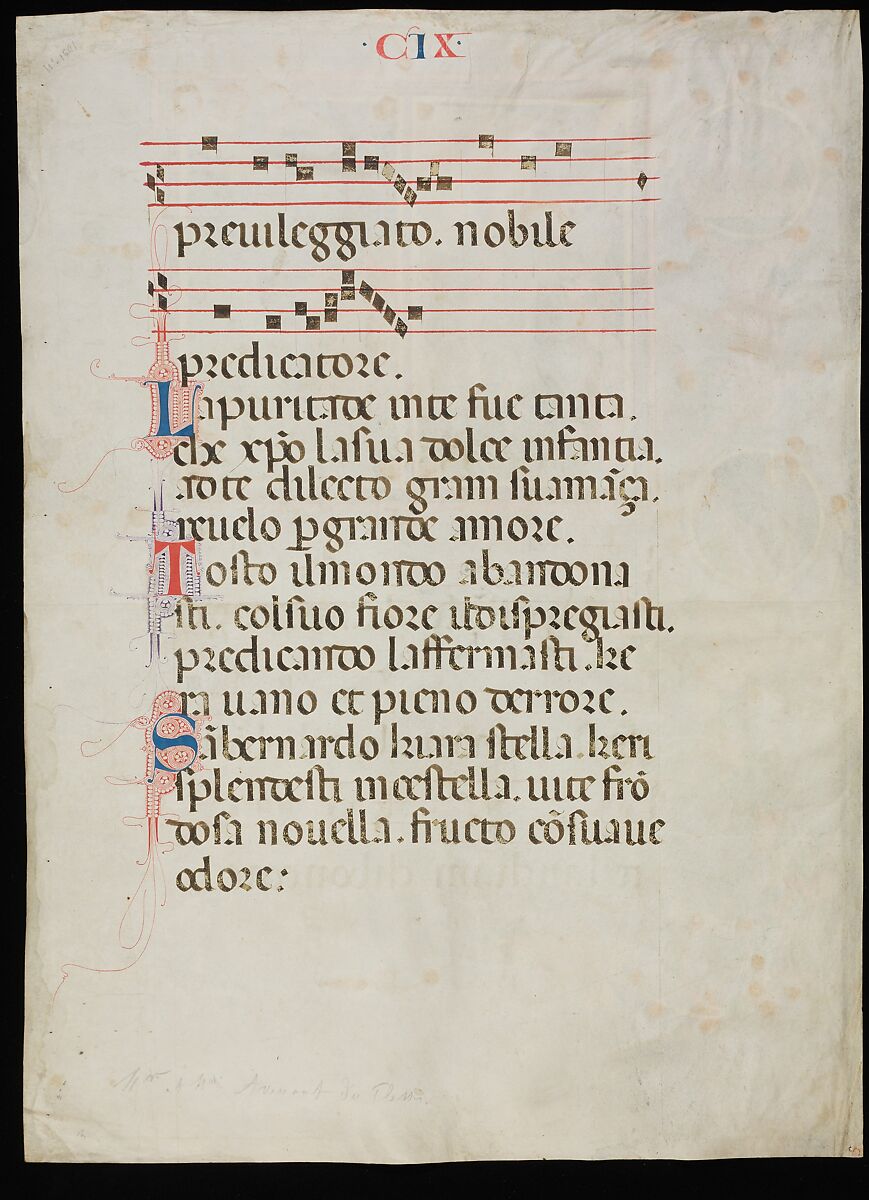 · CIX ·
preuileggiato. nobile
predicatore.
Lapuritade inte fue tanta.
che xp̄o lasua dolce infantia.
ate dilecto gram suamāça.
reuelo ꝑgrande amore.
Tosto ilmondo abandona
sti. colsuo fiore ildispregiasti.
predicando laffermasti. ke
ra uano et pieno derrore.
Sābernardo kiara stella. keri
splendesti incestella. uite frō
dosa nouella. fructo cōsuaue
odore: